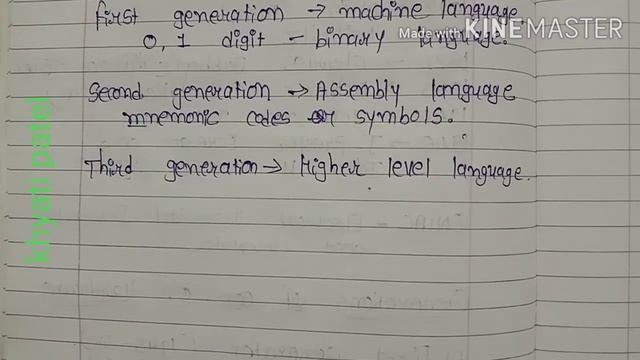 first generation → machine language
0, 1 digit - binary language.
Made with KINEMASTER
Second generation → Assembly language
mnemonic codes or symbols.
Third generation → Higher level language.
khyati patel